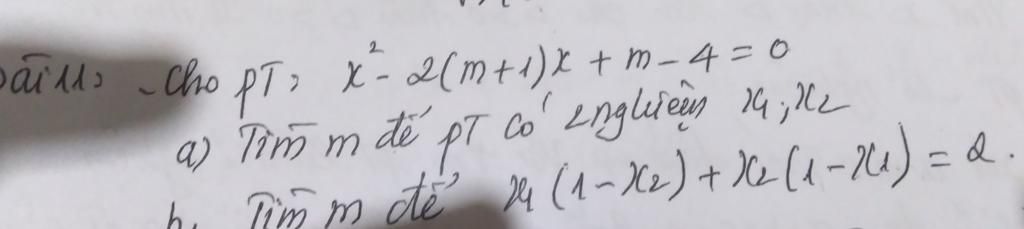 Bài 11: - Cho pT: x² - 2(m+1)x + m - 4 = 0
a) Tìm m để pT có 2 nghiệm x1; x2
b. Tìm m để x1(1-x2) + x2(1-x1) = 2.